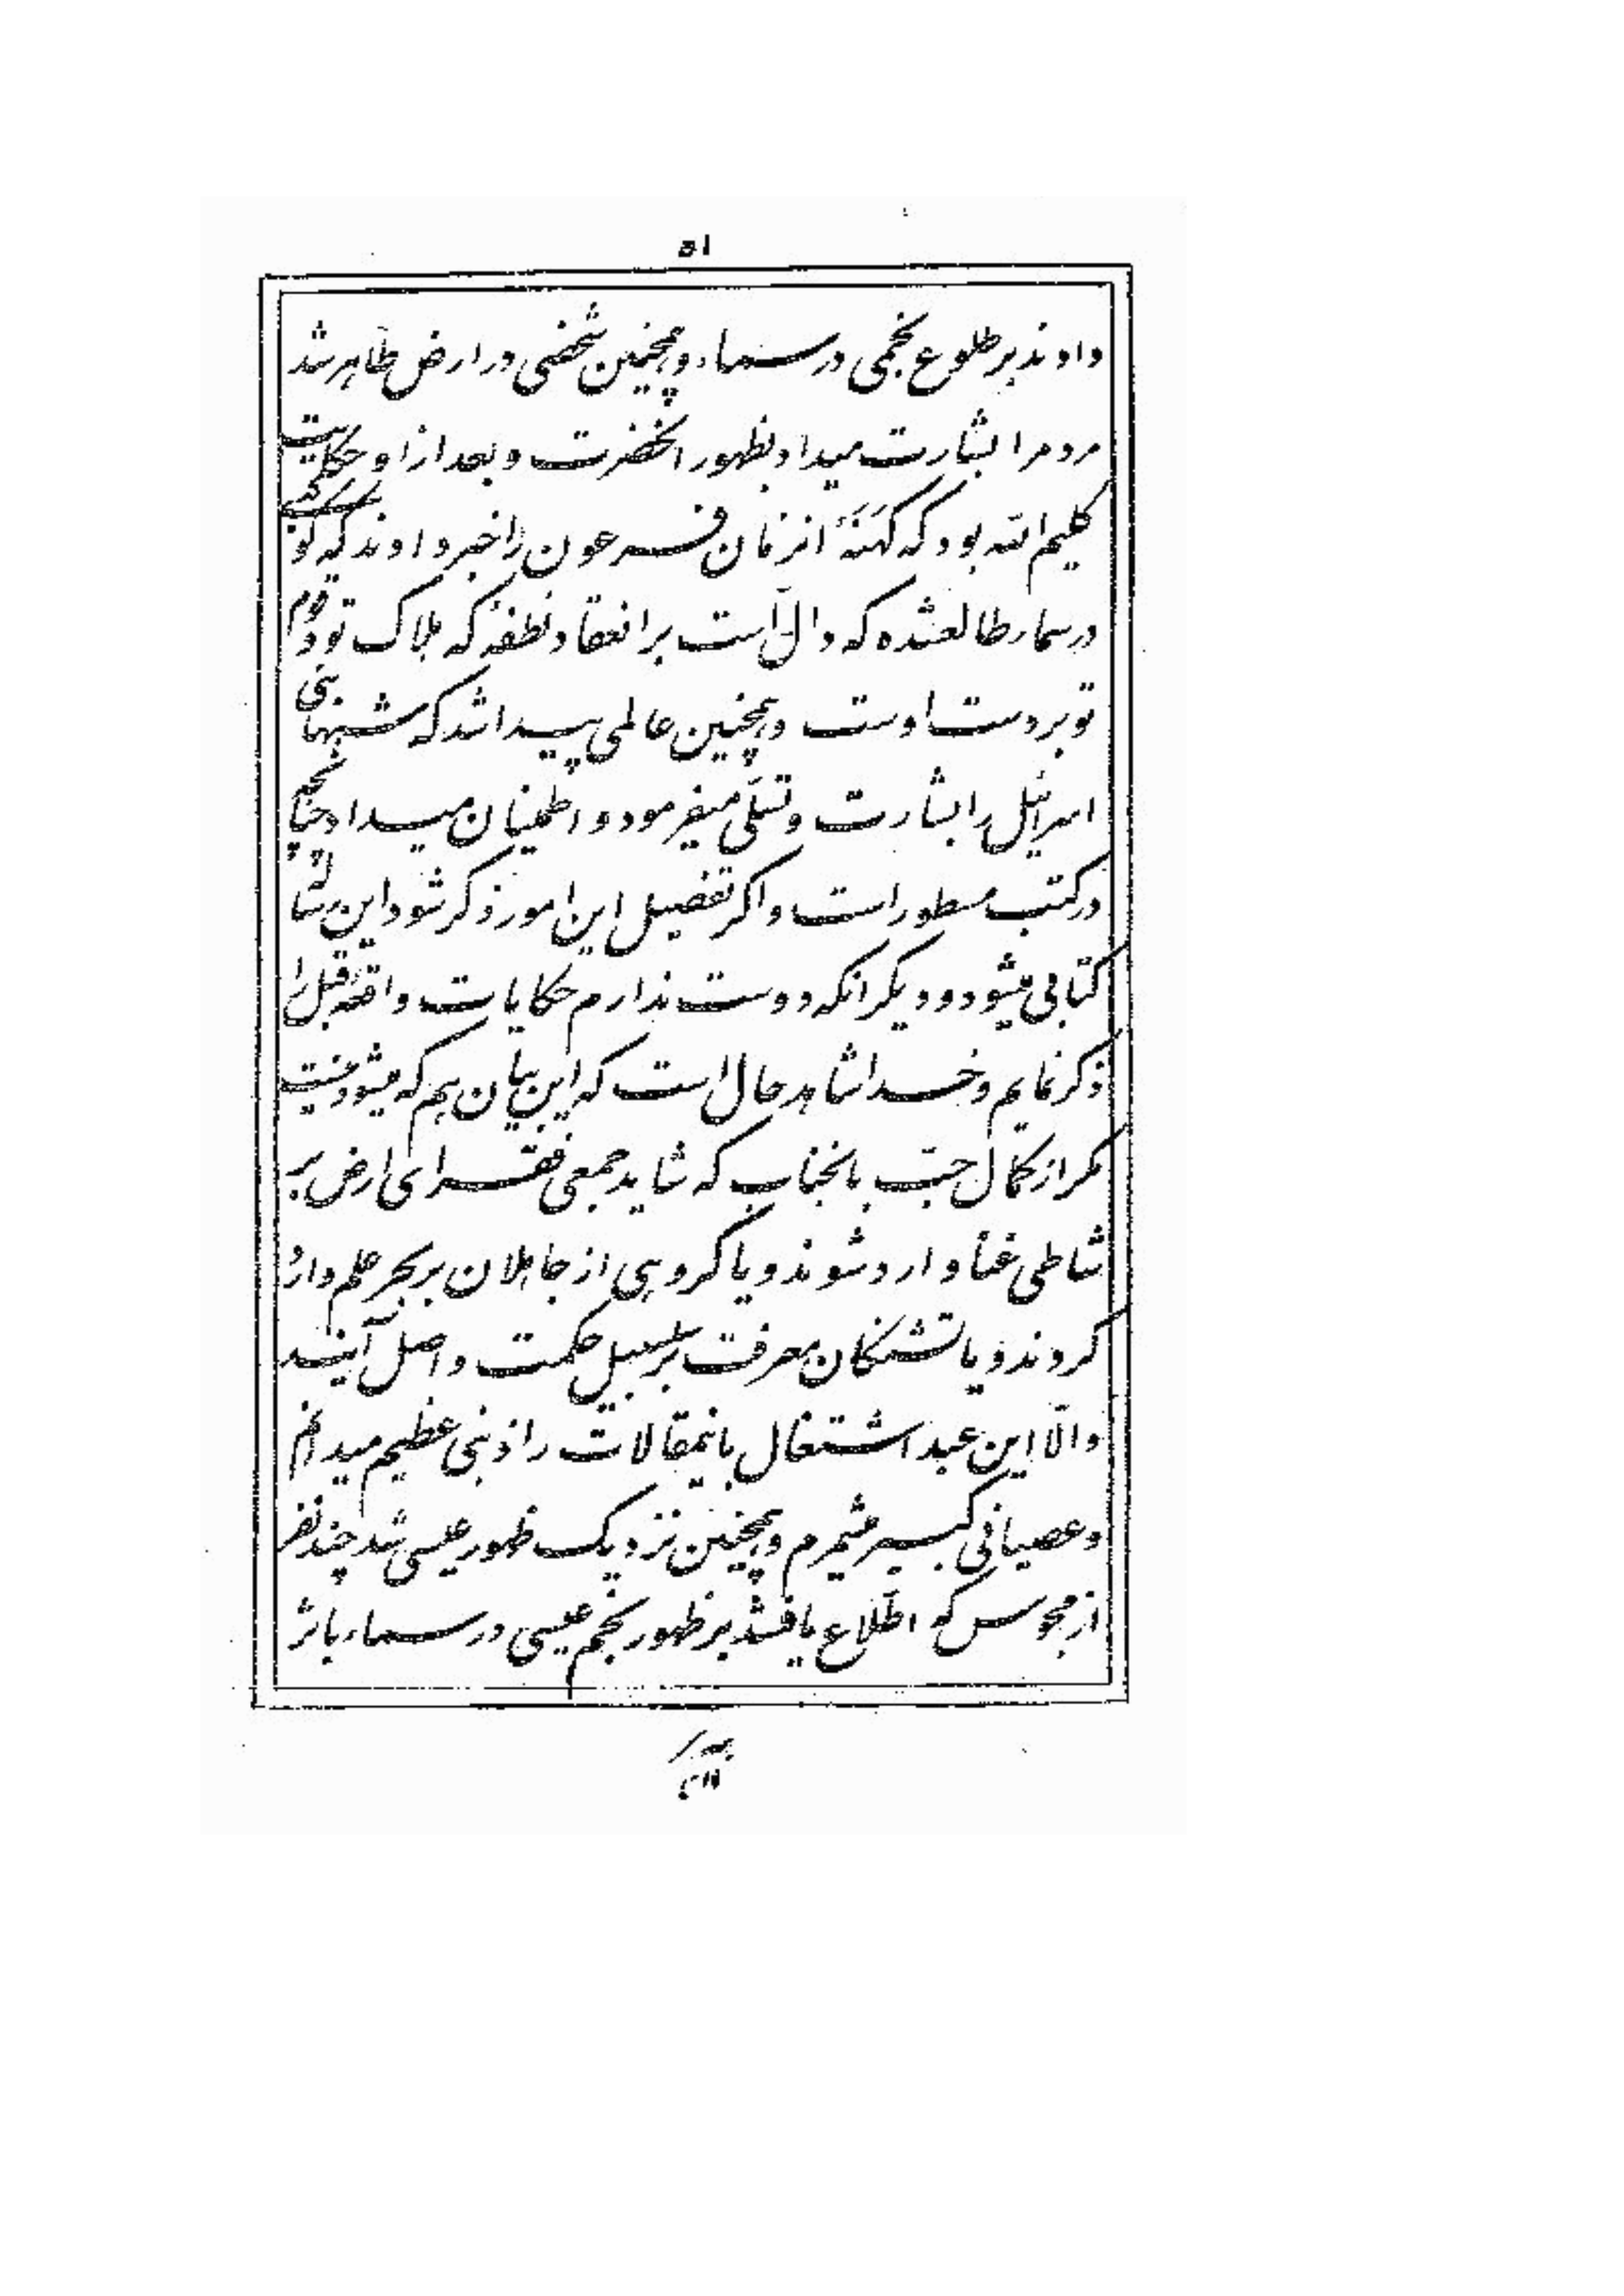 ۵۱
دادند بر طلوع نجمی در سماء و همچنین شخصی در ارض ظاهر شد
مردم را بشارت میداد بظهور انحضرت و بعد از او حکایت
کلیم الله بود که کهنهٔ انزمان فرعون را خبر دادند که کوکبی
در سماء طالع شده که دالّ است بر انعقاد نطفهٔ که هلاک تو و قوم
تو بر دست اوست و همچنین عالمی پیدا شد که شبها بنی
اسرائیل را بشارت و تسلّی میفرمود و اطمینان میداد چنانچه
در کتب مسطور است و اکر تفصیل این امور ذکر شود این رساله
کتابی میشود و دیکر انکه دوست ندارم حکایات واقعهٔ قبل را
ذکر نمایم و خدا شاهد حال است که این بیان هم که میشود نیست
مکر از کمال حبّ بانجناب که شاید جمعی فقرای ارض بر
شاطی غنا وارد شوند و یا کروهی از جاهلان بر بحر علم وارد
کردند و یا تشنکان معرفت بر سلسبیل حکمت واصل آیند
و الّا این عبد اشتغال باینمقالات را ذنبی عظیم میدانم
و عصیانی کبیر میشمرم و همچنین نزدیک ظهور عیسی شد چند نفر
از مجوس که اطّلاع یافتند بر ظهور نجم عیسی در سماء باثر